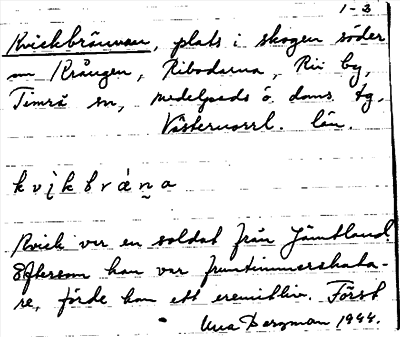 1-3
Kvickbrännan, plats i skogen söder
om Krången, Ribodarna, Rii by,
Timrå sn, Medelpads ö. doms. tg,
Västernorrl. län.
Kvick var en soldat från Jämtland.
Eftersom han var fruntimmershata-
re, förde han ett eremitliv. Först
Una Bergman 1944.